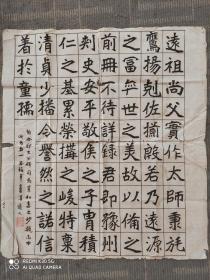 遠祖尚父實作太師秉旄
鷹揚剋佐揃殷若乃遠源
之富奕世之美故以備之
前冊不待詳錄君即豫州
刺史安平敬侯之子胄積
仁之基累榮構之峻特稟
清貞少播令譽然之諾信
著於童孺